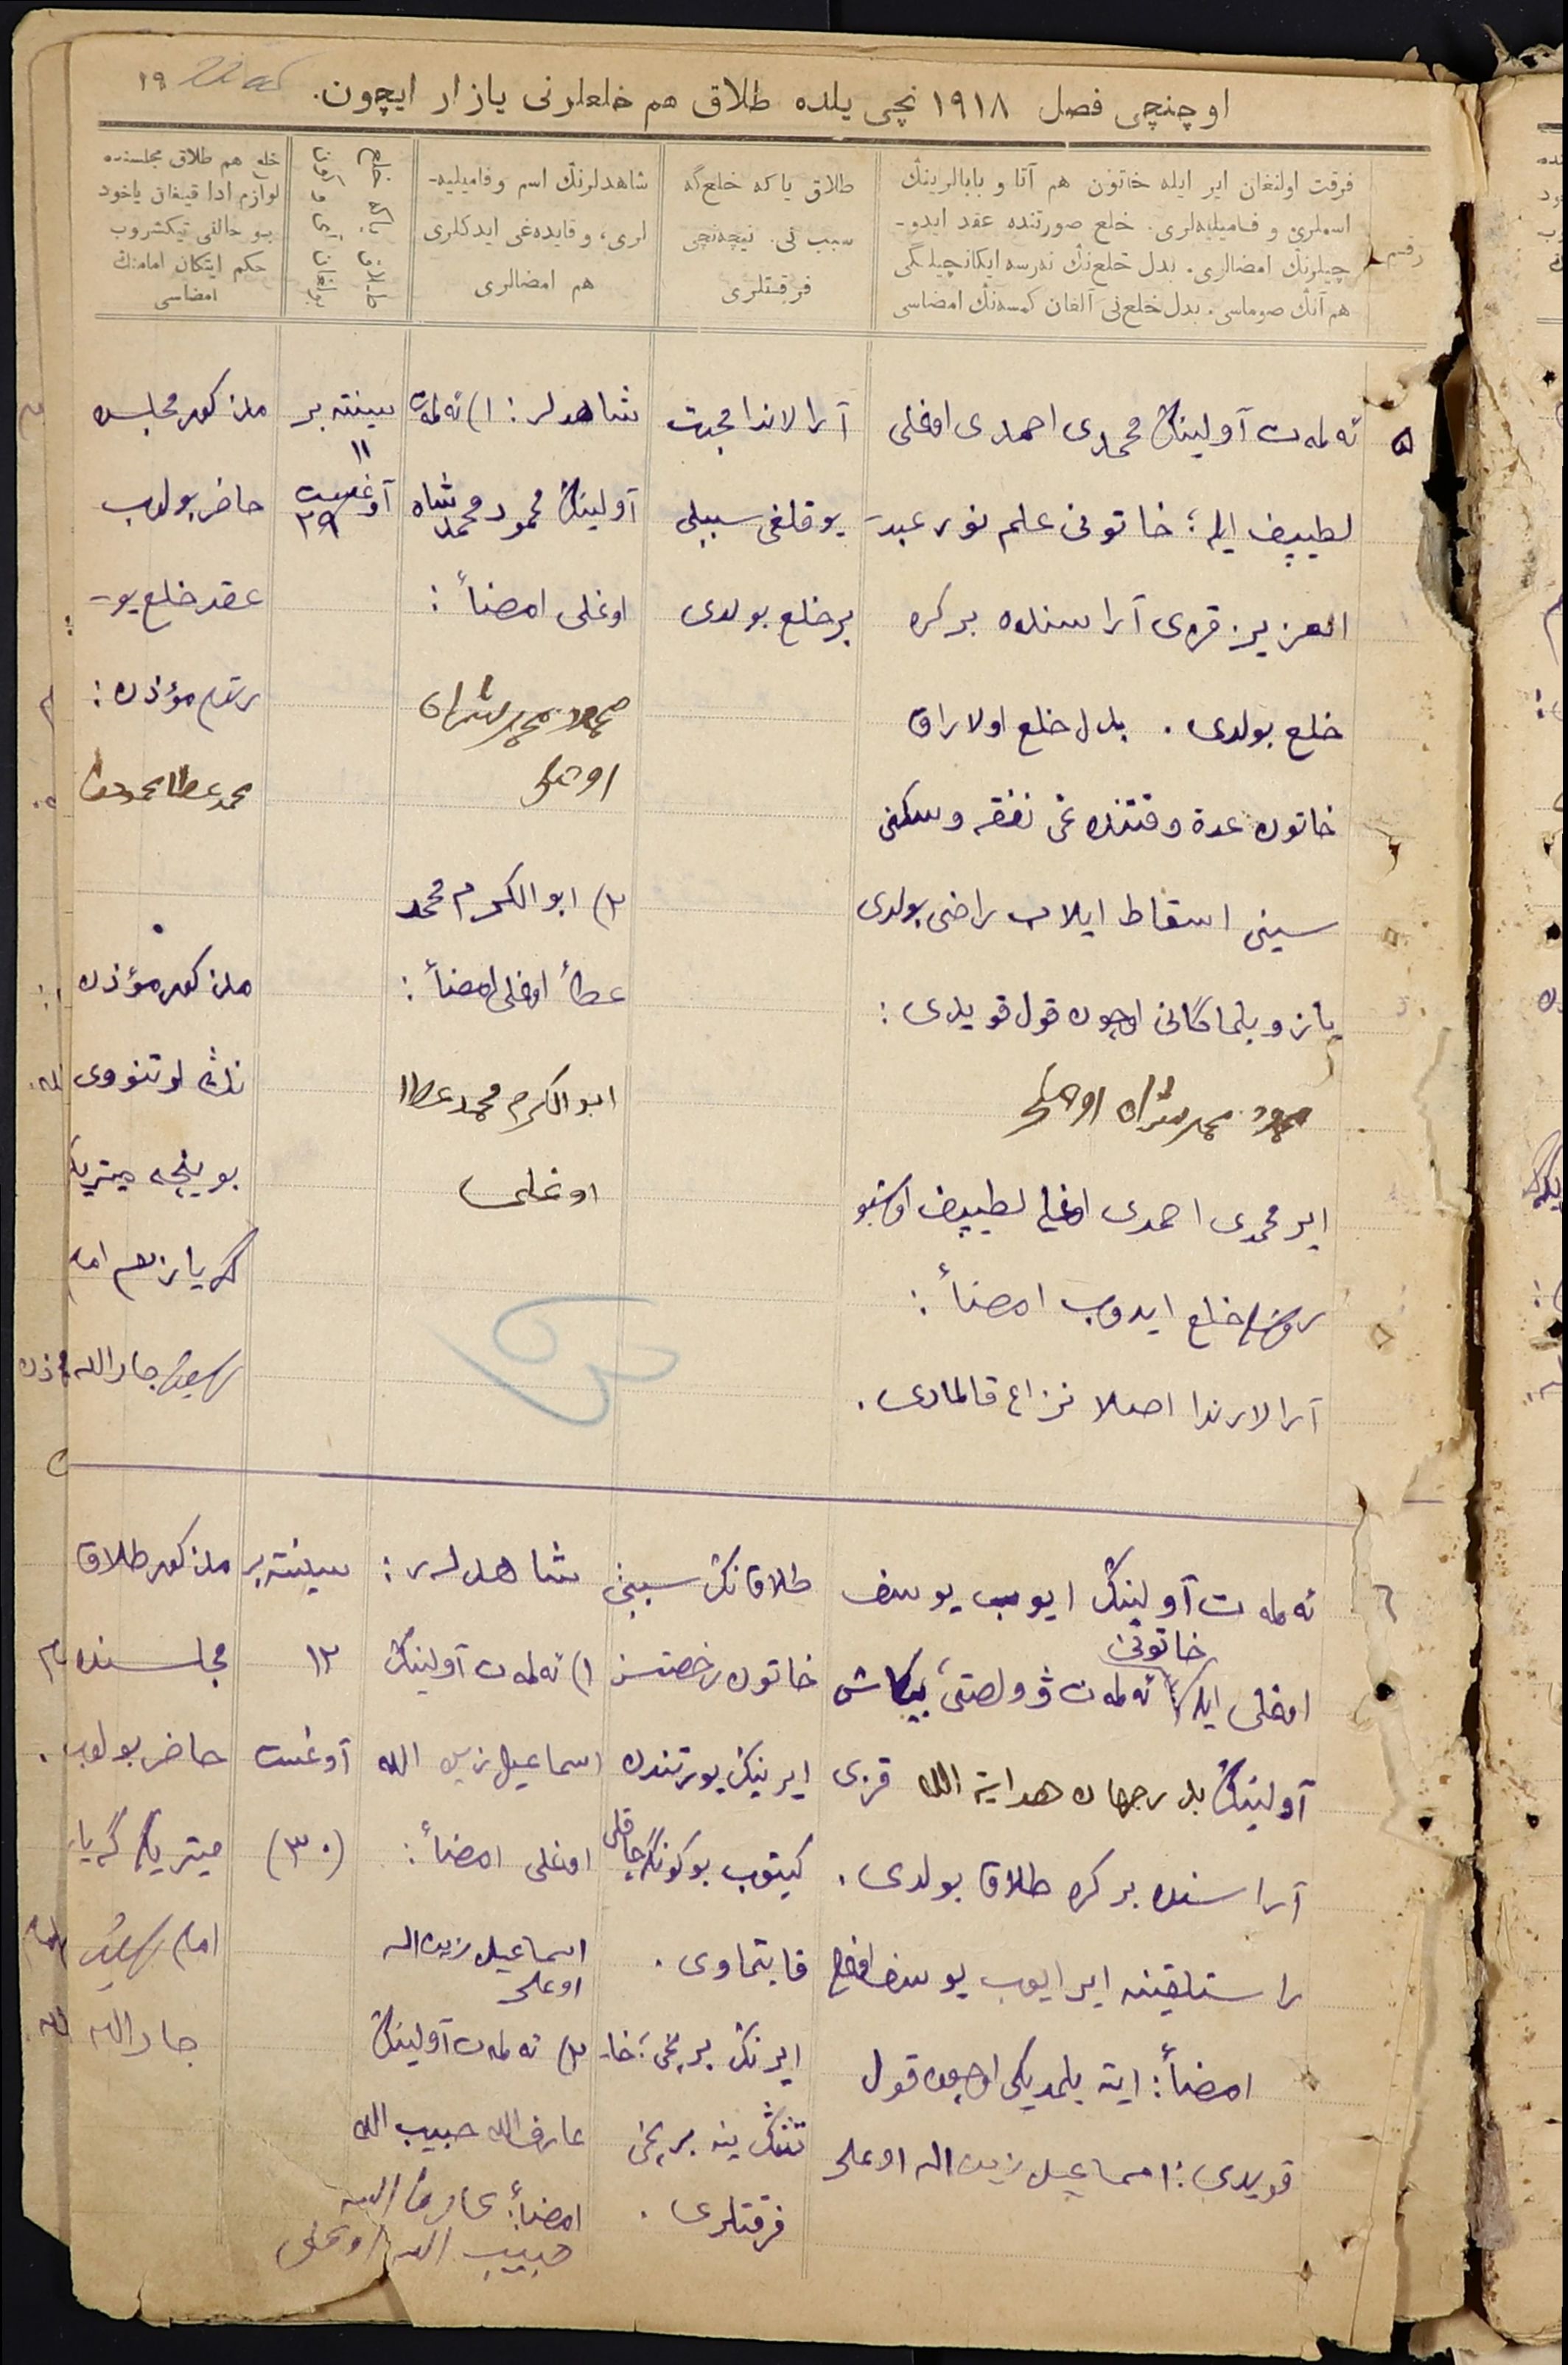 اوچنچی فصل ١٩١٨ نچی یلده طلاق هم خلعلرنی یازار ایچون.
١٩
رقم
فرقت اولنغان ایر ایله خاتون هم آتا و بابالرینڭ
اسملری و فامیلیه‌لری. خلع صورتنده عقد ایدو-
چیلرنڭ امضالری. بدل خلع‌نڭ نەرسه ایکانچیلگی
هم آنڭ صوماسی. بدل خلع‌نی آلغان کمسه‌نڭ امضاسی
طلاق یا که خلع گه
سبب نی. نیچه‌نچی
فرقتلری
شاهدلرنڭ اسم و فامیلیه-
لری، و قایده‌غی ایدکلری
هم امضالری
خلع هم طلاق مجلسنده
لوازم ادا قیلغان یاخود
بو حالنی تیکشروب
حکم ایتکان امامنڭ
امضاسی
٥
تەلمەت آولینڭ محمدی احمدی اوغلی
لطیپف ایله؛ خاتونی علم نور عبد-
العزیز قزی آراسنده بر کره
خلع بولدی. بدل خلع اولاراق
خاتون عدة وقتنده غی نفقه و سکنی
سینی اسقاط ایلاب راضی بولدی
یازو بلماگانی اوچون قول قویدی:
محمود محمدشاه اوغلی
ایر محمدی احمدی اوغلی لطیپف اوشبو
خلع ایدوب امضاأ:
آرالارندا اصلا نزاع قالمادی.
آرالاندا محبت
یوقلغی سببلی
بر خلع بولدی
شاهدلر: ١) تەلمەت
آولینڭ محمود محمدشاه
اوغلی امضاأ:
محمود محمدشاه
اوغلی
٢) ابوالکرم محمد
عطاأ اوغلی امضاأ:
ابوالکرم محمدعطاا
اوغلی
سینتەبر
١١
آوغست
٢٩
مذکور مجلسده
حاضر بولوب
عقد خلع یو-
رتدم مؤذن:
محمدعطا
مذکور مؤذن
نڭ اوتنووی
بوینچه میتریکە
گە یازدم امام
جارالله
٦
تەلمەت آولینڭ ایوب یوسف
اوغلی ایله تەلمەت ڤولصتی، بیکاش
خاتونی
آولینڭ بدرجهان هدایة الله قزی
آراسنده بر کره طلاق بولدی.
راستلقینه ایر ایوب یوسف اوغلی
امضاأ: ایته بلمدیکی اوچون قول
قویدی: اسماعیل زین الله اوغلی
طلاقنڭ سببی
خاتون رخصتسز
ایرینڭ یورتندن
کیتوب بو کونگاچاقلی
قایتماوی.
ایرنڭ برنچی؛ خا-
تننڭ ینه برنچی
فرقتلری.
شاهدلر:
١) تەلمەت آولینڭ
اسماعیل زین الله
اوغلی امضاأ:
اسماعیل زین الله
اوغلی
٢) تەلمەت آولینڭ
عارف الله حبیب الله
امضاأ: عارف الله
حبیب الله اوغلی
سینتەبر
١٢
آوغست
(٣٠)
مذکور طلاق
مجلسنده
حاضر بولوب
میتریکە گە یاز
امام
جارالله